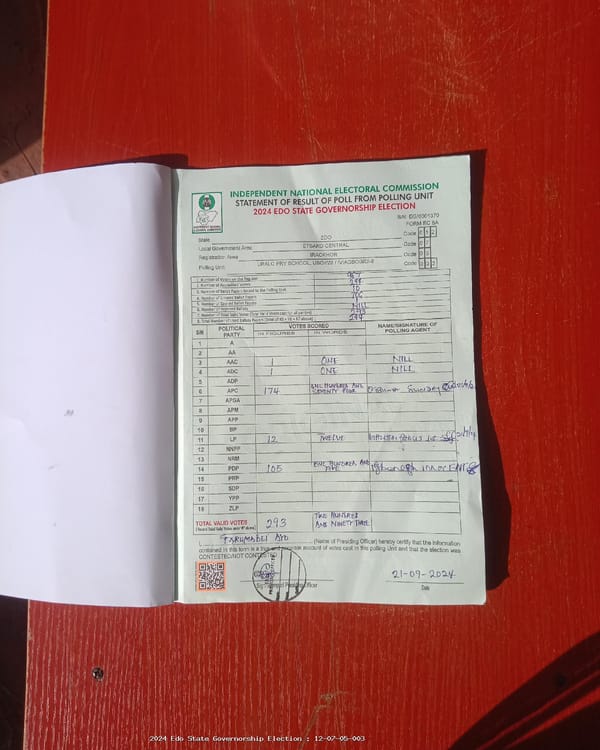 INDEPENDENT NATIONAL ELECTORAL COMMISSION
STATEMENT OF RESULT OF POLL FROM POLLING UNIT
2024 EDO STATE GOVERNORSHIP ELECTION
FORM EC 8A
State EDO Code
Local Government Area ETSAKO CENTRAL Code
Registration Area Code
Polling Unit Code
1. Number of Voters on the Register
2. Number of Accredited Voters
3. Number of Ballot Papers Issued to the Polling Unit
4. Number of Unused Ballot Papers
5. Number of Spoiled Ballot Papers
6. Number of Rejected Ballots NILL
7. Number of Total Valid Votes 293
8. Total Number of Used Ballot Papers 294
S/N POLITICAL PARTY VOTES SCORED NAME/SIGNATURE OF POLLING AGENT
IN FIGURES IN WORDS
1 A
2 AA
3 AAC 1 ONE NILL
4 ADC 1 ONE NILL
5 ADP
6 APC 174 ONE HUNDRED AND SEVENTY FOUR Sunday
7 APGA
8 APM
9 APP
10 BP
11 LP 12 TWELVE
12 NNPP
13 NRM
14 PDP 105 ONE HUNDRED AND FIVE
15 PRP
16 SDP
17 YPP
18 ZLP
TOTAL VALID VOTES 293 TWO HUNDRED AND NINETY THREE
I, AYO (Name of Presiding Officer) hereby certify that the information
contained in this form is a true and accurate account of votes cast in this polling Unit and that the election was
CONTESTED/NOT CONTESTED
Presiding Officer
21-09-2024
Date
2024 Edo State Governorship Election : 12-07-05-003